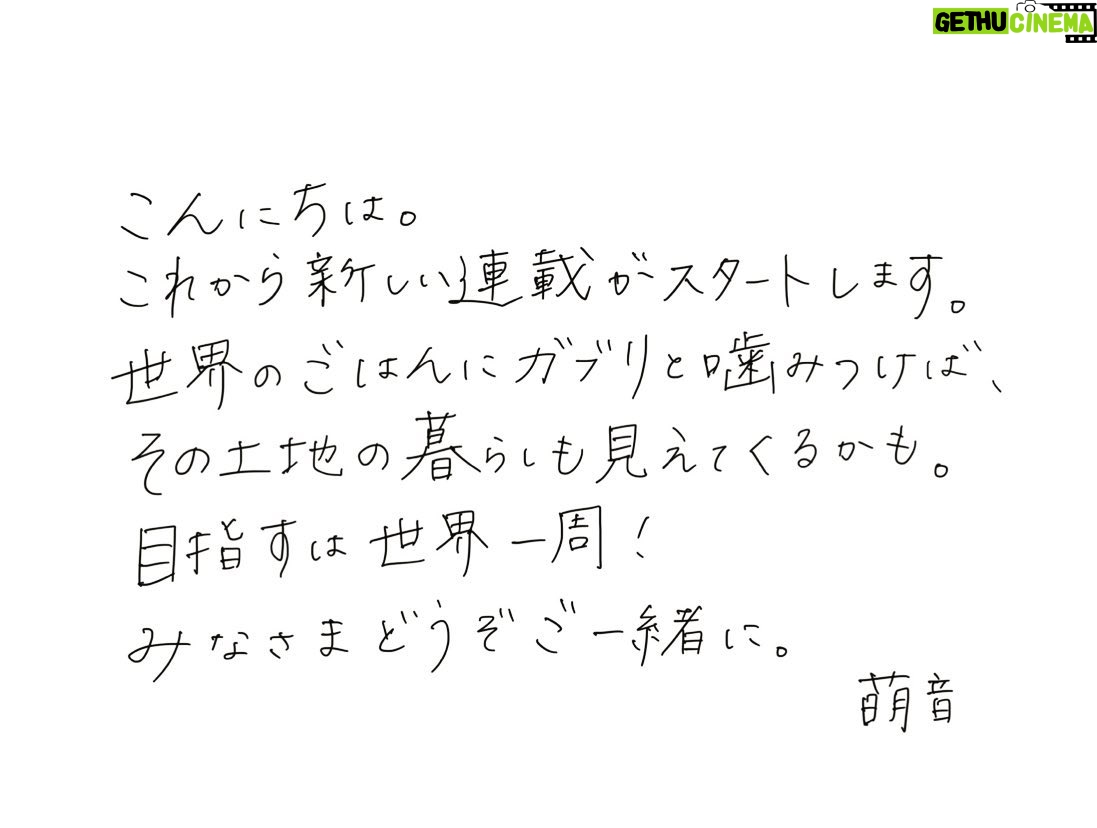 GETHU CINEMA
こんにちは。
これから新しい連載がスタートします。
世界のごはんにガブリと噛みつけば、
その土地の暮らしも見えてくるかも。
目指すは世界一周！
みなさまどうぞご一緒に。
萌音